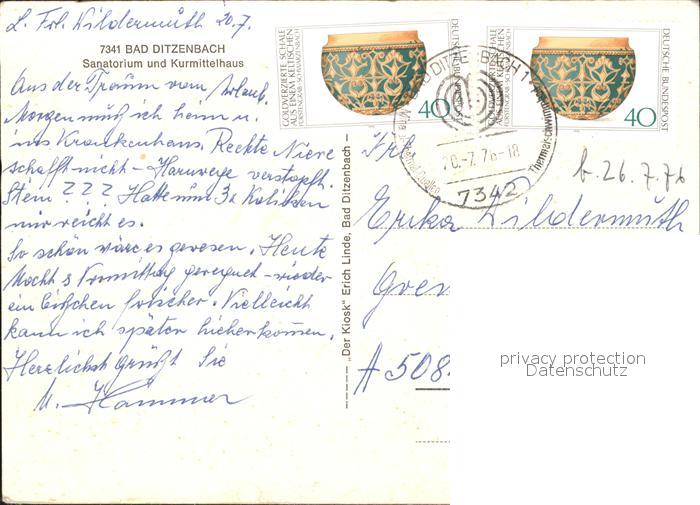 L. Frl. Wildermuth 20.7.
7341 BAD DITZENBACH
Sanatorium und Kurmittelhaus
Aus der Traum vom Urlaub.
Morgen muß ich heim u.
ins Krankenhaus. Rechte Niere
schafft nicht – Harnwege verstopft.
Stein ? ? ? Hatte nun 3x Koliken
mir reicht es.
So schön wäre es gewesen. Heute
Nacht & Vormittag geregnet – wieder
ein bißchen frischer. Vielleicht
kann ich später hieherkommen.
Herzlichst grüßt Sie
M. Hammer
„Der Kiosk" Erich Linde, Bad Ditzenbach
GOLDVERZIERTE SCHALE
AUS EINEM KELTISCHEN
FÜRSTENGRAB · SCHWARZENBACH
DEUTSCHE BUNDESPOST
40
GOLDVERZIERTE SCHALE
AUS EINEM KELTISCHEN
FÜRSTENGRAB · SCHWARZENBACH
DEUTSCHE BUNDESPOST
40
BAD DITZENBACH 1
20.-7.76-18
7342
b. 26.7.76
Frl.
Erika Wildermuth
A 508
privacy protection
Datenschutz